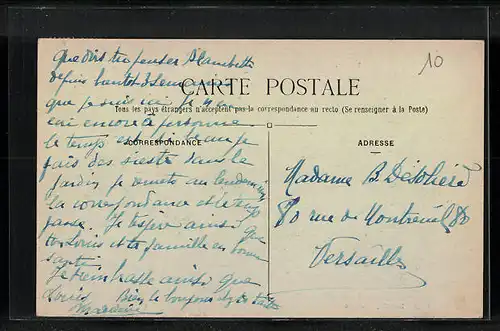 10
que dois tu penser Blanchette
depuis bientot 3 semaines
CARTE POSTALE
que je suis ici je n'ai
Tous les pays étrangers n'acceptent pas la correspondance au recto (Se renseigner à la Poste)
encore à personne
le temps est si beau je
CORRESPONDANCE
ADRESSE
fais des sieste dans le
jardin je remets au lendemain
la correspondance et le temps
passe. J'espère ainsi que
Louis et ta famille en bonne
santé
Je t'embrasse ainsi que
Louis Bien le bonjour
Madeleine
Madame B.
80 rue de Montreuil 80
Versailles